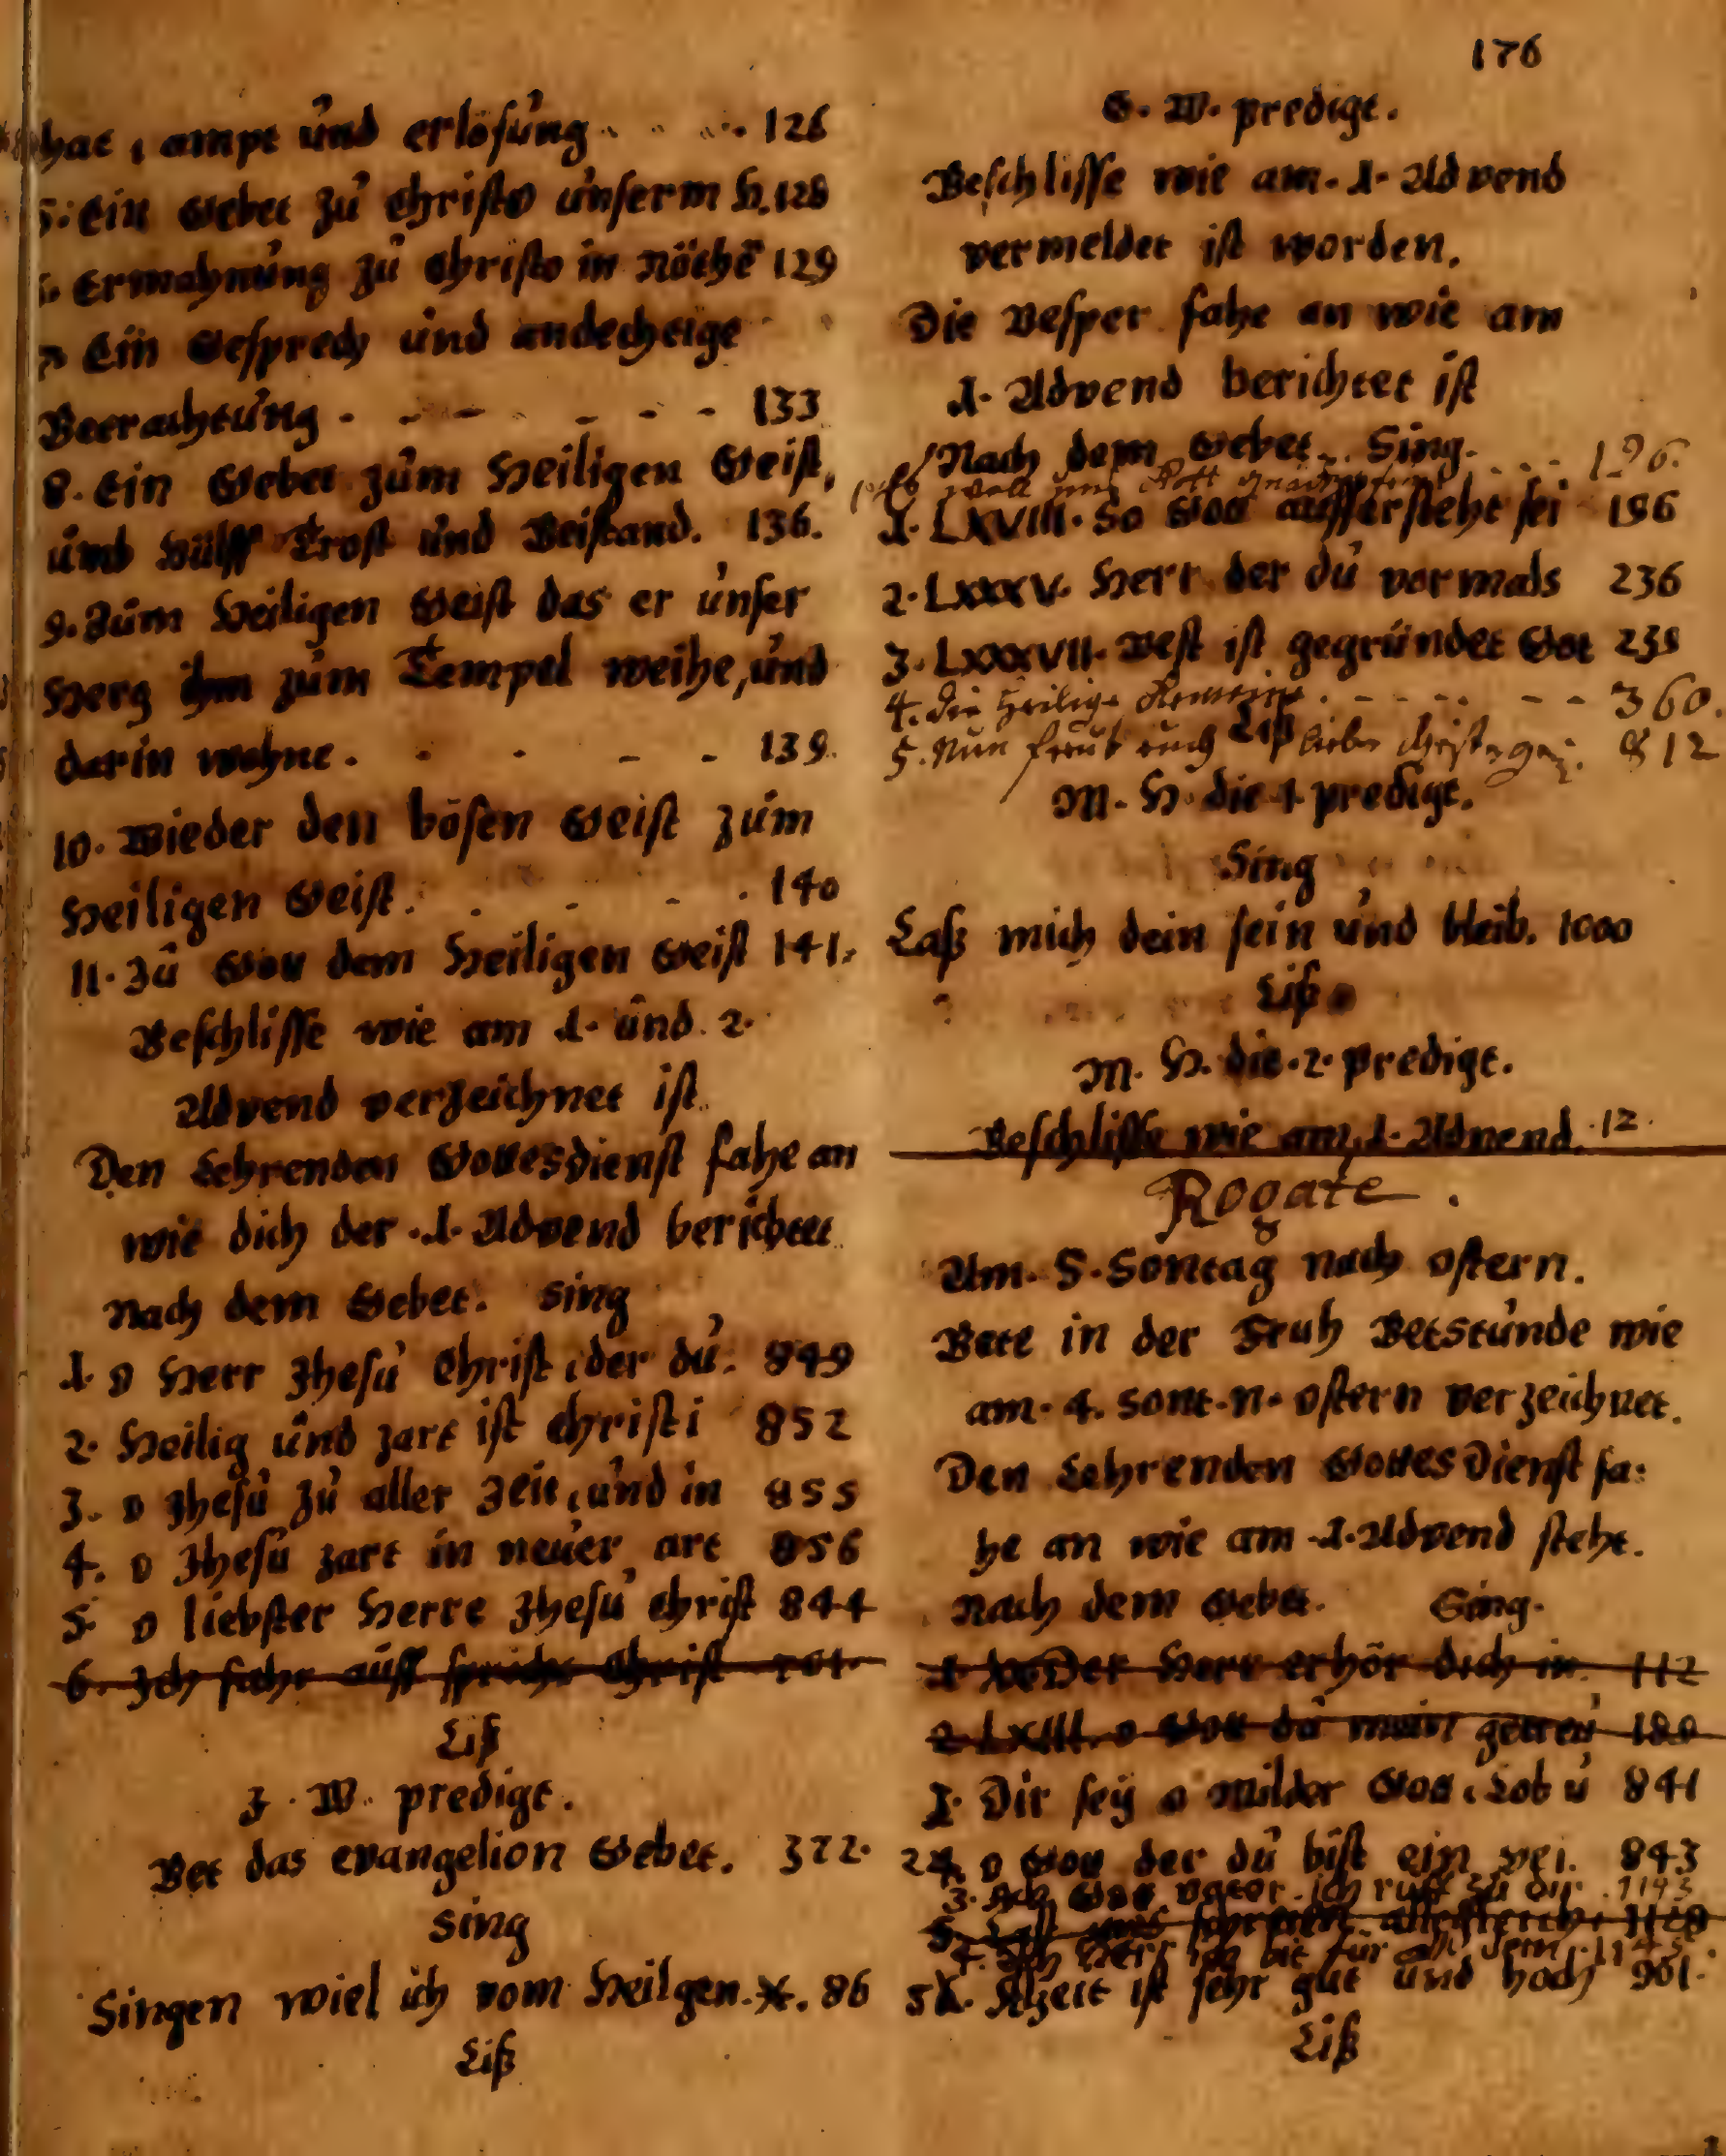 hat, ampt und erlösung . . . . 126
5. Ein Gebet zu Christo unserm H. 128
6. Ermahnung zu Christo in Nöthē 129
7. Ein Gesprech und andechtige
Betrachtung - - - - - - 133
8. Ein Gebet zum Heiligen Geist,
umb Hülff Trost und Beistand. 136.
9. Zum Heiligen Geist das er unser
Hertz ihm zum Tempel weihe, und
darin wohne . . . - - 139.
10. Wieder den bösen Geist zum
Heiligen Geist . . . - . 140
11. Zu Gott dem Heiligen Geist 141.
Beschlisse wie am 1. und 2.
Advend verzeichnet ist.
Den Lehrenden Gottesdienst fahe an
wie dich der .1. Advend berichtet
Nach dem Gebet. Sing
1. O Herr Jhesu Christ, der du. 849
2. Heilig und zart ist Christi 852
3. O Jhesu zu aller Zeit, und in 855
4. O Jhesu zart in neuer art 856
5. O liebster Herre Jhesu Christ 844
6. Ich fahr auff spricht Christ
Liß
J. W. predigt.
Bet das evangelion Gebet. 372.
Sing
Singen wiel ich vom Heilgen. 86
Liß
176
G. W. predigt.
Beschlisse wie am. 1. Advend
vermeldet ist worden.
Die Vesper fahe an wie am
1. Advend berichtet ist
Nach dem Gebet. Sing.
Es woll uns Gott 196.
1. LXVIII. So Gott auffersteht sei 196
2. LXXXV. Herr der du vormals 236
3. LXXXVII. Vest ist gegründet Got 239
4. Die Heilige Gemeine . - - - - - 360.
5. Nun freut euch liebe Christen 812
Liß
M. H. die 1. predigt.
Sing
Laß mich dein sein und bleib. 1000
Liß
M. H. die .2. predigt.
Beschlisse wie am 1. Advend. 12.
Rogate .
Am. 5. Sontag nach Ostern.
Bete in der Fruh Betstunde wie
am. 4. Sont. n. Ostern verzeichnet.
Den Lehrenden Gottes Dienst fa:
he an wie am .1. Advend steht.
Nach dem Gebet. Sing.
1. XX Der Herr erhör dich in. 112
2 LXIII. O Gott du mein getreu 180
1. Dir sey o Milder Gott, Lob u 841
2 4. O Gott der du bist ein vei. 843
3. Ach Gott vater ich ruff zu dir. 1143
5. Last uns schreien alle
4. Ach Herr ich bit für
5 Alzeit ist sehr gut und hoch 901.
Liß